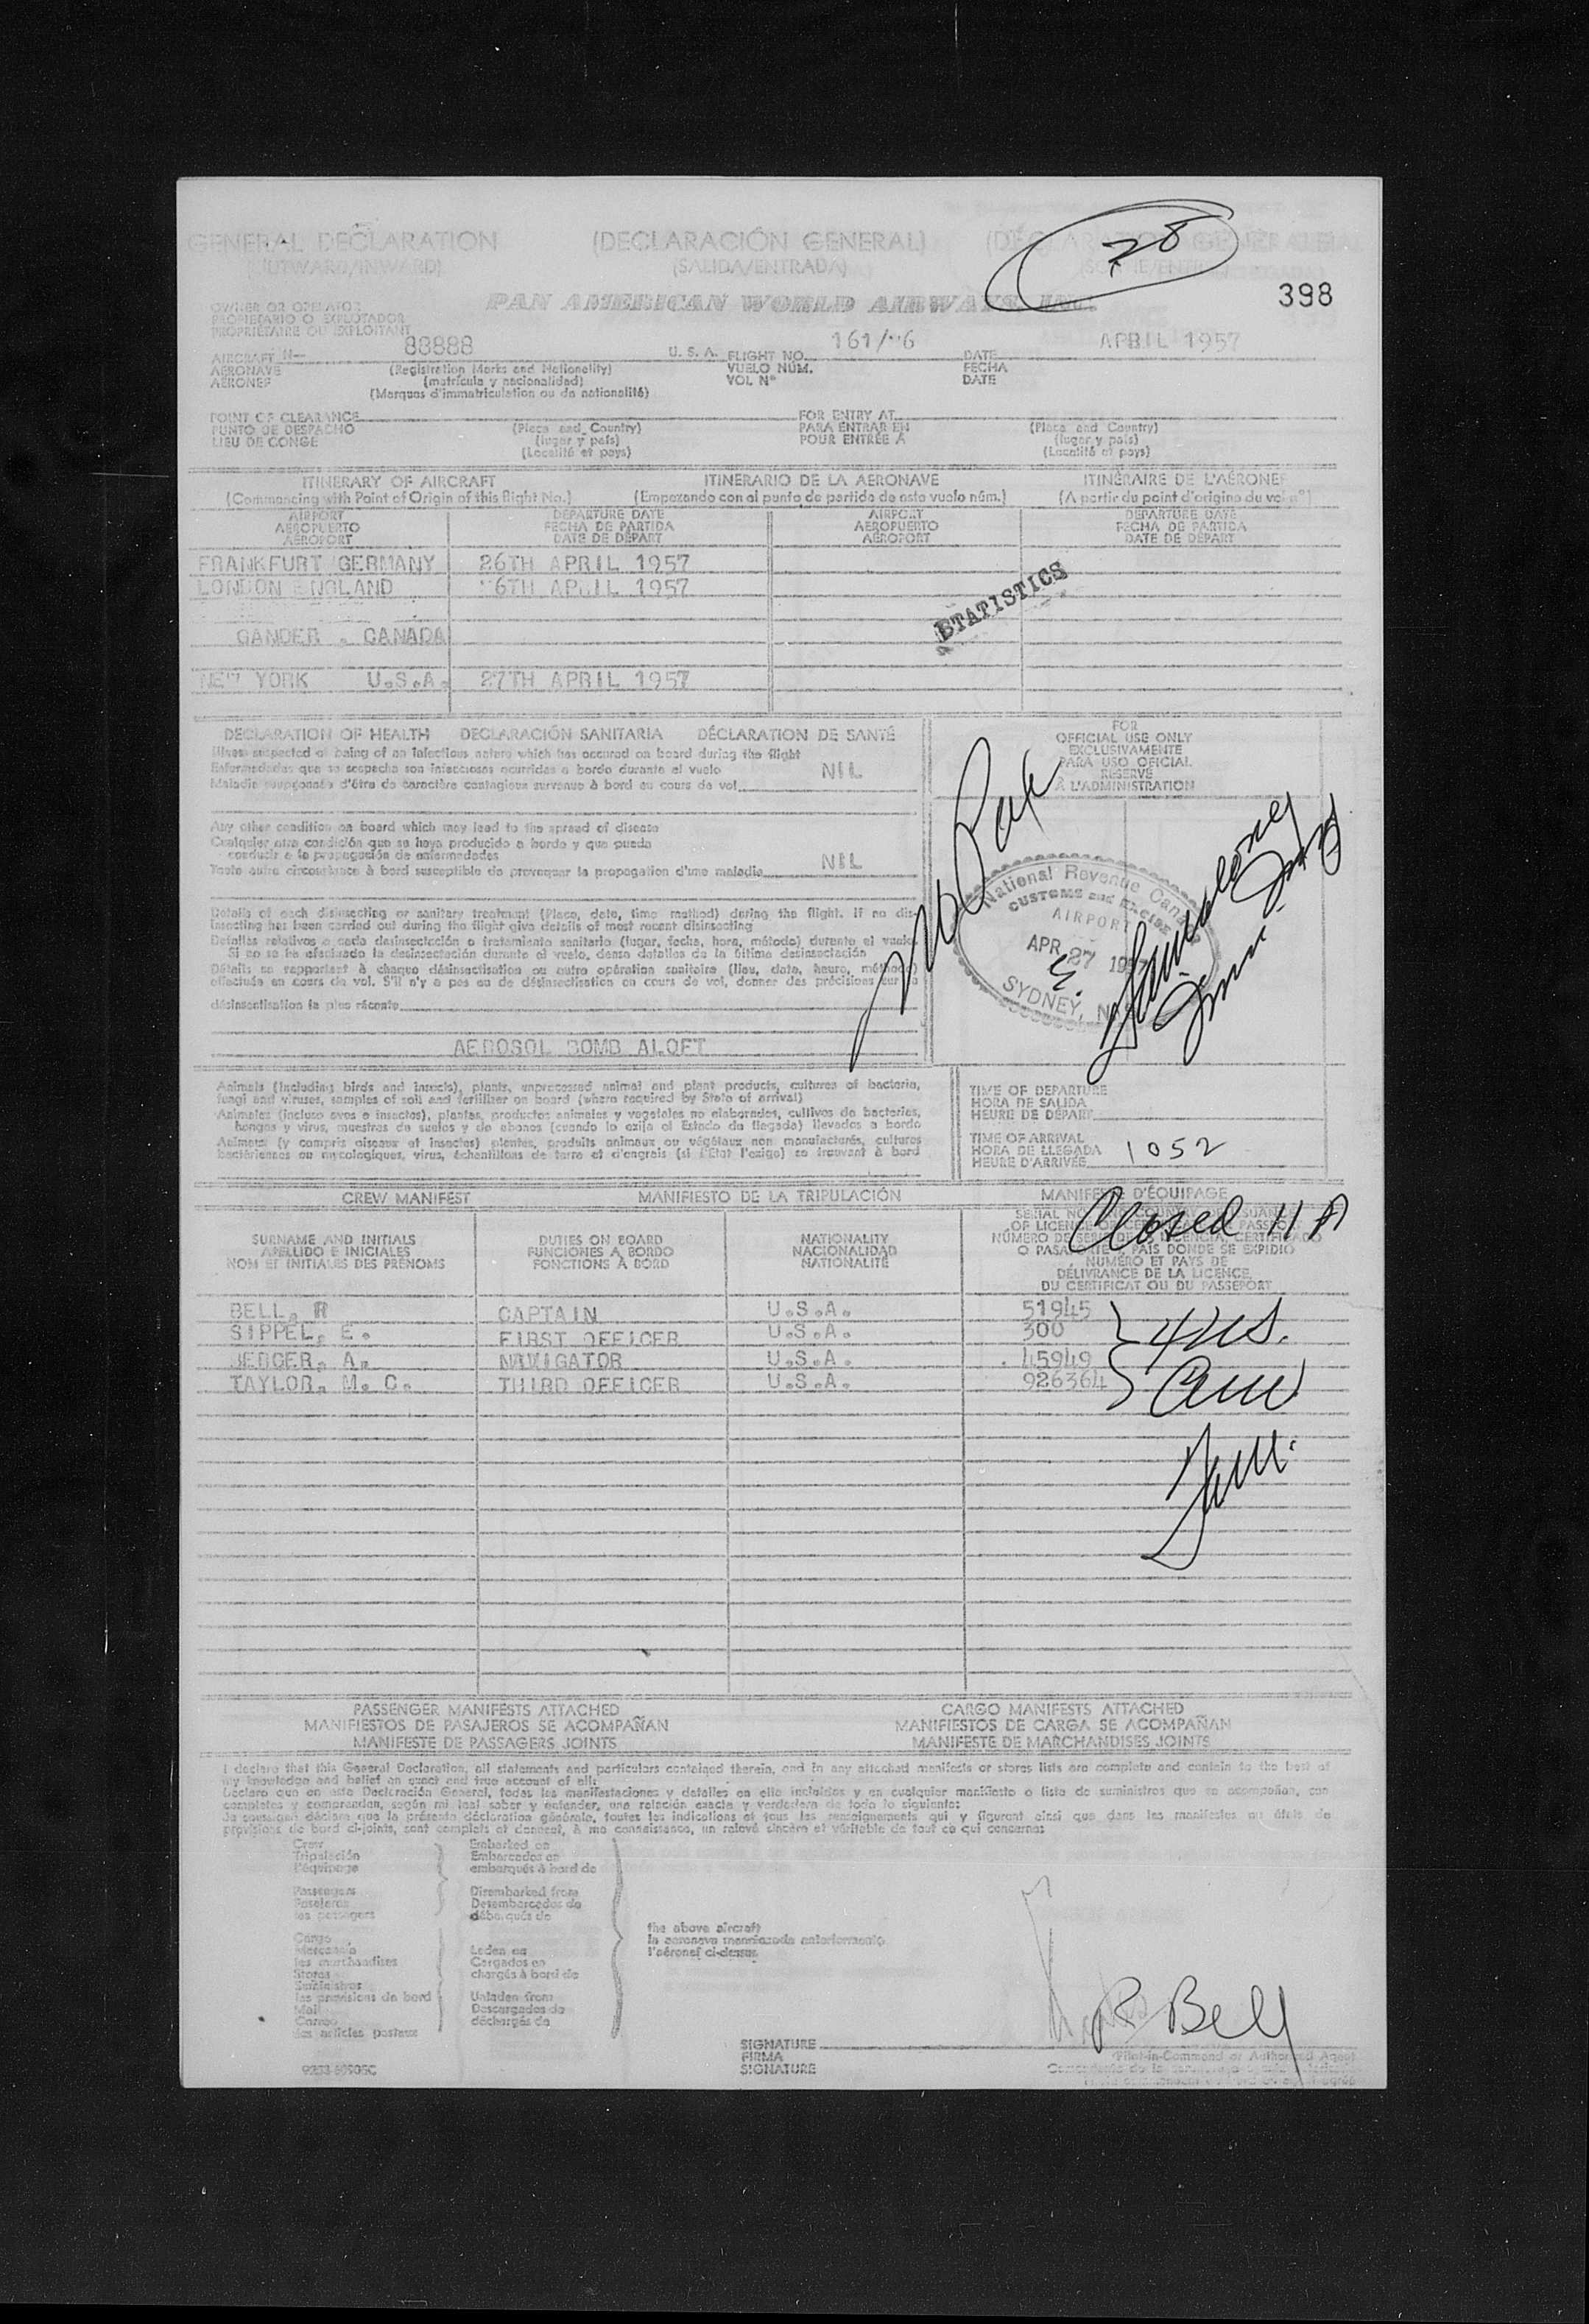 28
398
GENERAL DECLARATION (DECLARACIÓN GENERAL)
(OUTWARD/INWARD) (SALIDA/ENTRADA)
OWNER OR OPERATOR PAN AMERICAN WORLD AIRWAYS, INC.
PROPIETARIO O EXPLOTADOR
PROPRIÉTAIRE OU EXPLOITANT
AIRCRAFT N- 88888 U. S. A. FLIGHT NO. 161/ 6 DATE APRIL 1957
AERONAVE (Registration Marks and Nationality) VUELO NÚM. FECHA
AÉRONEF (matrícula y nacionalidad) VOL Nº DATE
(Marques d'immatriculation ou de nationalité)
POINT OF CLEARANCE FOR ENTRY AT
PUNTO DE DESPACHO (Place and Country) PARA ENTRAR EN (Place and Country)
LIEU DE CONGE (lugar y país) POUR ENTRÉE À (lugar y país)
(Localité et pays) (Localité et pays)
ITINERARY OF AIRCRAFT ITINERARIO DE LA AERONAVE ITINÉRAIRE DE L'AÉRONEF
(Commencing with Point of Origin of this flight No.) (Empezando con el punto de partida de este vuelo núm.) (A partir du point d'origine du vol nº)
AIRPORT DEPARTURE DATE AIRPORT DEPARTURE DATE
AEROPUERTO FECHA DE PARTIDA AEROPUERTO FECHA DE PARTIDA
AÉROPORT DATE DE DÉPART AÉROPORT DATE DE DÉPART
FRANKFURT GERMANY 26TH APRIL 1957
LONDON ENGLAND 26TH APRIL 1957
STATISTICS
GANDER . CANADA
NEW YORK U.S.A. 27TH APRIL 1957
DECLARATION OF HEALTH DECLARACIÓN SANITARIA DÉCLARATION DE SANTÉ
Illness suspected of being of an infectious nature which has occured on board during the flight
Enfermedades que se sospecha son infecciosas ocurridas a bordo durante el vuelo NIL
Maladie soupçonnée d'être de caractère contagieux survenue à bord au cours de vol
Any other condition on board which may lead to the spread of disease
Cualquier otra condición que se haya producido a bordo y que pueda
conducir a la propagación de enfermedades
Toute autre circonstance à bord susceptible de provoquer la propagation d'une maladie NIL
Details of each disinsecting or sanitary treatment (Place, date, time method) during the flight. If no dis-
insecting has been carried out during the flight give details of most recent disinsecting
Detalles relativos a cada desinsectación o tratamiento sanitario (lugar, fecha, hora, método) durante el vuelo.
Si no se ha efectuado la desinsectación durante el vuelo, dense detalles de la última desinsectación
Détails se rapportant à chaque désinsectisation ou autre opération sanitaire (lieu, date, heure, méthode)
effectuée en cours de vol. S'il n'y a pas eu de désinsectisation en cours de vol, donner des précisions sur la
désinsectisation la plus récente
AEROSOL BOMB ALOFT
FOR
OFFICIAL USE ONLY
EXCLUSIVAMENTE
PARA USO OFICIAL
RESERVÉ
À L'ADMINISTRATION
No Pax
National Revenue Canada
CUSTOMS and EXCISE
AIRPORT
APR 27 1957
SYDNEY, N
Animals (including birds and insects), plants, unprocessed animal and plant products, cultures of bacteria,
fungi and viruses, samples of soil and fertilizer on board (where required by State of arrival)
Animales (incluso aves e insectos), plantas, productos animales y vegetales no elaborados, cultivos de bacterias,
hongos y virus, muestras de suelos y de abonos (cuando lo exija el Estado de llegada) llevados a bordo
Animaux (y compris oiseaux et insectes) plantes, produits animaux ou végétaux non manufacturés, cultures
bactériennes ou mycologiques, virus, échantillons de terre et d'engrais (si l'Etat l'exige) se trouvant à bord
TIME OF DEPARTURE
HORA DE SALIDA
HEURE DE DÉPART
TIME OF ARRIVAL
HORA DE LLEGADA 1052
HEURE D'ARRIVÉE
CREW MANIFEST MANIFIESTO DE LA TRIPULACIÓN MANIFESTE D'ÉQUIPAGE
Closed
SURNAME AND INITIALS DUTIES ON BOARD NATIONALITY
APELLIDO E INICIALES FUNCIONES A BORDO NACIONALIDAD O PASAPORTE, PAÍS DONDE SE EXPIDIÓ
NOM ET INITIALES DES PRÉNOMS FONCTIONS À BORD NATIONALITÉ NUMÉRO ET PAYS DE
DÉLIVRANCE DE LA LICENCE,
DU CERTIFICAT OU DU PASSEPORT
BELL, R CAPTAIN U.S.A. 51945
SIPPEL, E. FIRST OFFICER U.S.A. 300
BERGER, A. NAVIGATOR U.S.A. 45949
TAYLOR, M. C. THIRD OFFICER U.S.A. 926364
4 US.
PASSENGER MANIFESTS ATTACHED CARGO MANIFESTS ATTACHED
MANIFIESTOS DE PASAJEROS SE ACOMPAÑAN MANIFIESTOS DE CARGA SE ACOMPAÑAN
MANIFESTE DE PASSAGERS JOINTS MANIFESTE DE MARCHANDISES JOINTS
I declare that this General Declaration, all statements and particulars contained therein, and in any attached manifests or stores lists are complete and contain to the best of
my knowledge and belief an exact and true account of all:
Declaro que en esta Declaración General, todas las manifestaciones y detalles en ella incluidos y en cualquier manifiesto o lista de suministros que se acompañan, son
completas y comprenden, según mi leal saber y entender, una relación exacta y verdadera de todo lo siguiente:
Je soussigné déclare que la présente déclaration générale, toutes les indications et tous les renseignements qui y figurent ainsi que dans les manifestes ou états de
provisions de bord ci-joints, sont complets et donnent, à ma connaissance, un relevé sincère et véritable de tout ce qui concerne:
Crew Embarked on
Tripulación Embarcados en
l'équipage embarqués à bord de
Passengers Disembarked from
Pasajeros Desembarcados de
les passagers débarqués de
Cargo the above aircraft
Mercancía Laden on la aeronave mencionada anteriormente
les marchandises Cargados en l'aéronef ci-dessus
Stores chargés à bord de
Suministros
les provisions de bord Unladen from
Mail Descargados de
Correo déchargés de
les articles postaux
R Bell
SIGNATURE
FIRMA Pilot-in-Command or Authorized Agent
SIGNATURE